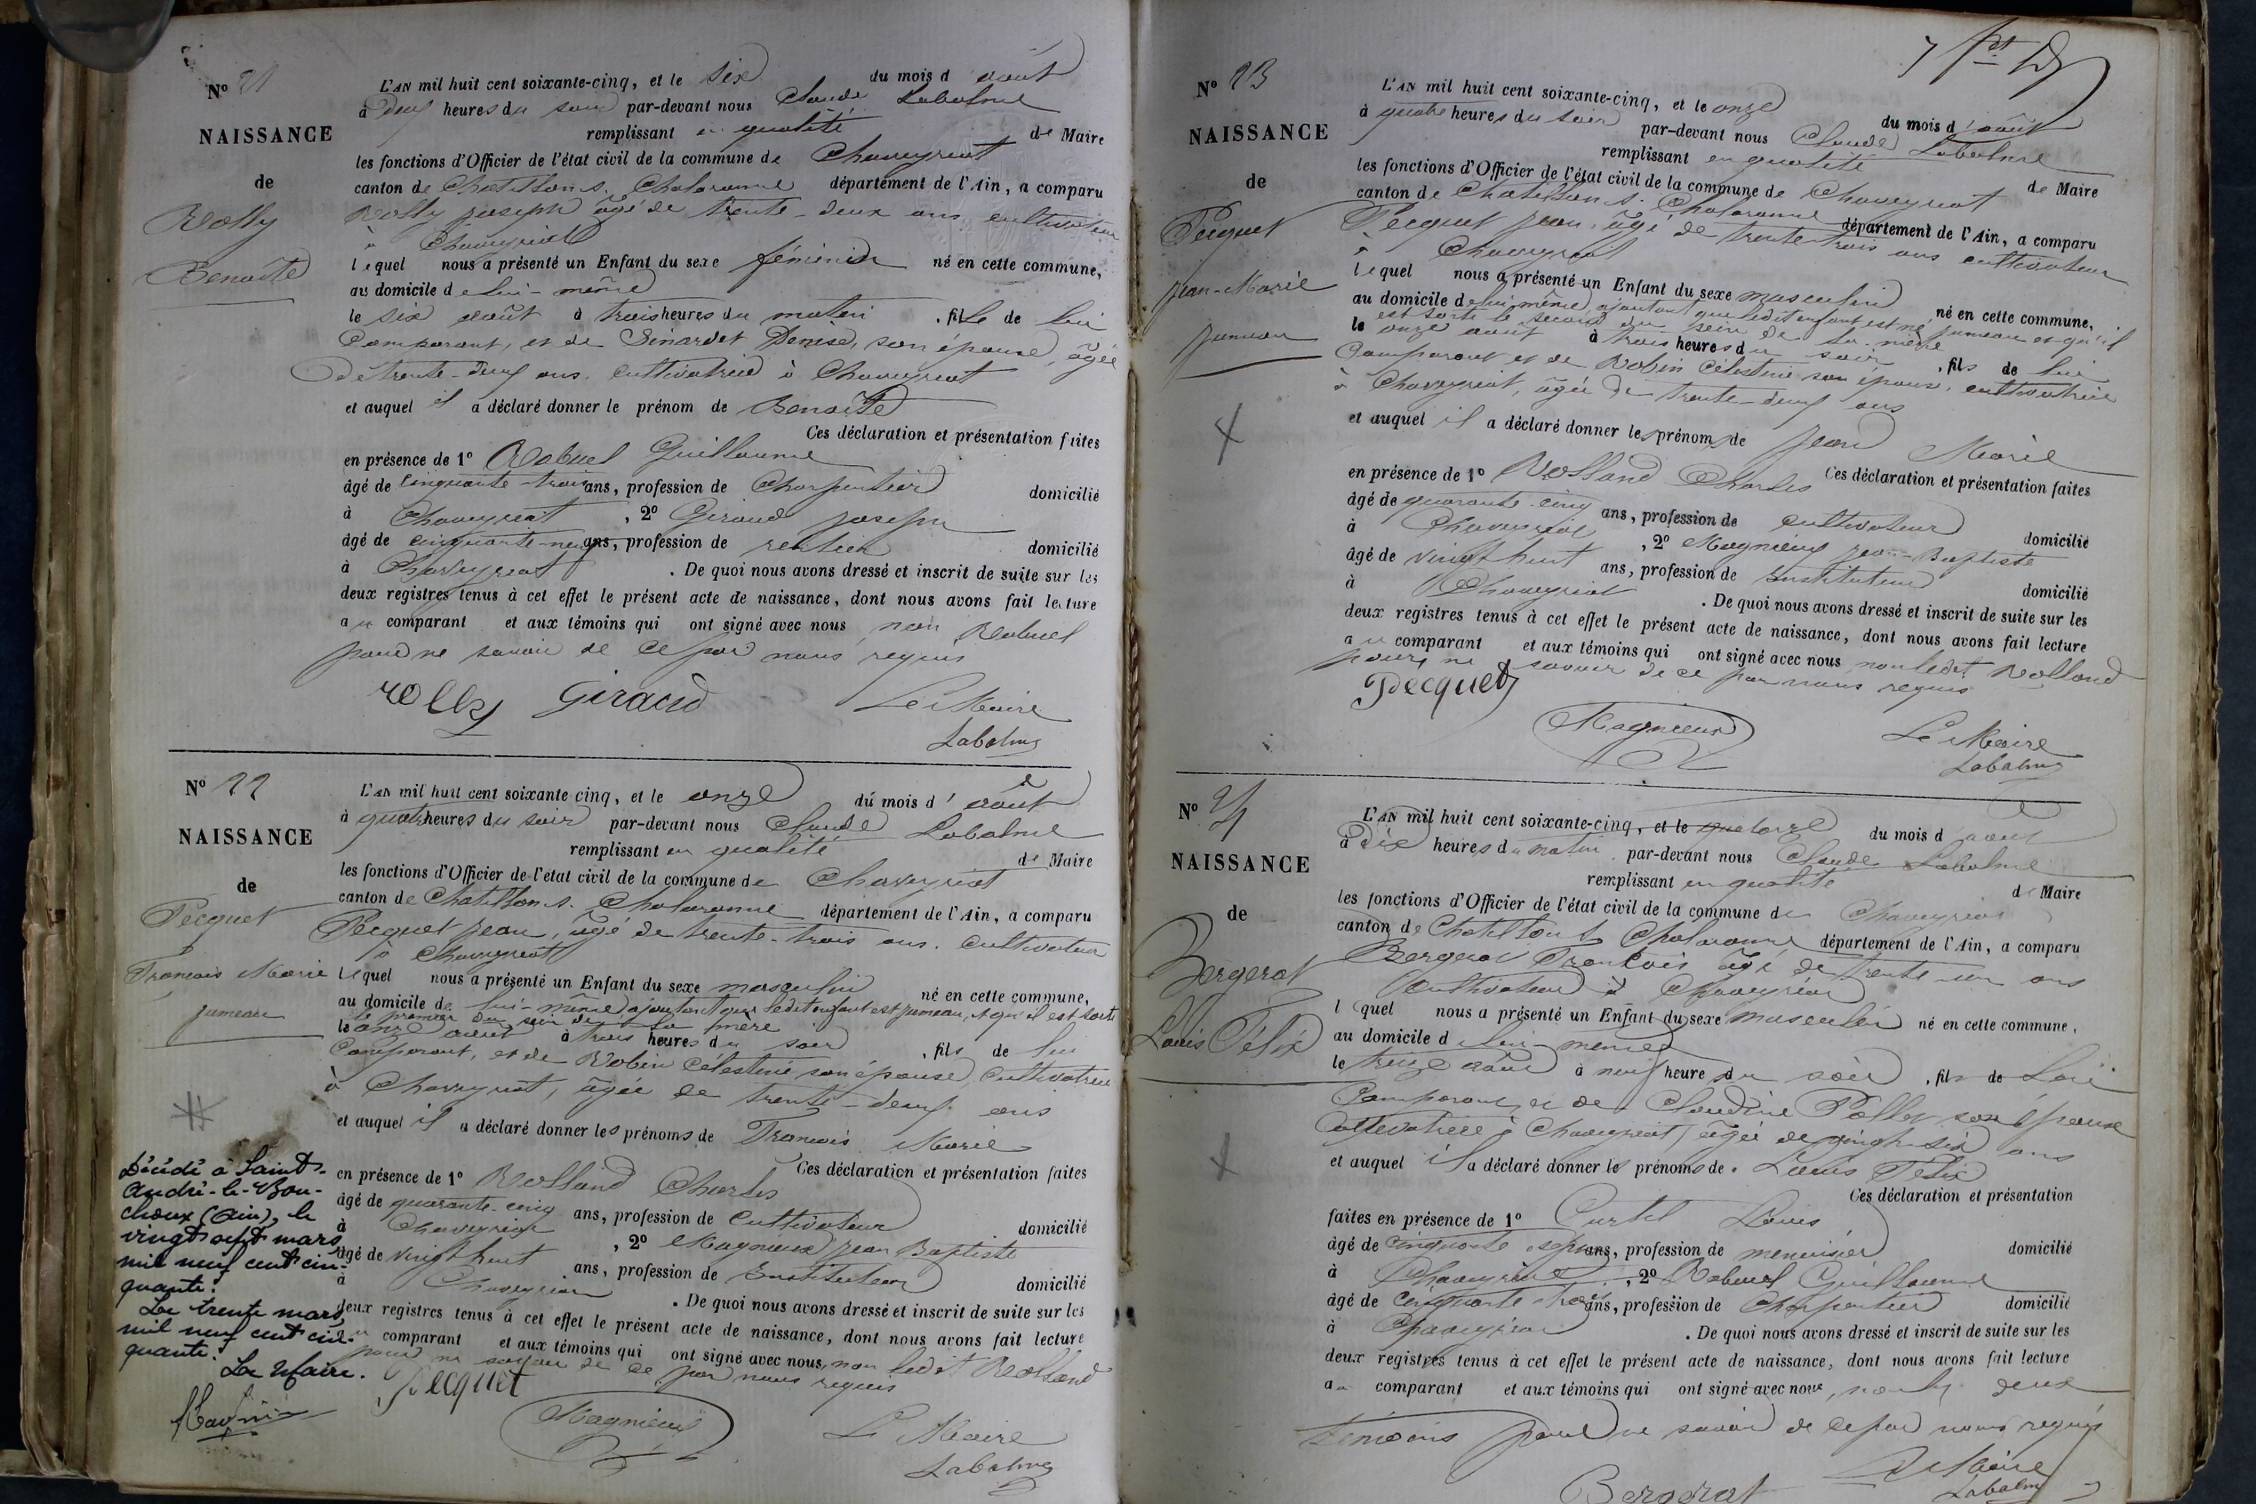 N° 21
NAISSANCE
de
Rolly
Benoite
L'AN mil huit cent soixante-cinq, et le six du mois d août
à deux heures du soir par-devant nous Claude Labalme
remplissant en qualité de Maire
les fonctions d'Officier de l'état civil de la commune de Chaveyriat
canton de Chatillon s. Chalaronne département de l'Ain, a comparu
Rolly joseph âgé de trente-deux ans cultivateur
à Chaveyriat
lequel nous a présenté un Enfant du sexe féminin né en cette commune,
au domicile de lui-même
le six août à trois heures du matin . fille de lui
Comparant, et de Sinardet Denise, son épouse, âgée
de trente-deux ans. cultivatrice à Chaveyriat
et auquel il a déclaré donner le prénom de Benoite
Ces déclaration et présentation faites
en présence de 1° Rabuel Guillaume
âgé de cinquante-trois ans, profession de Charpentier domicilié
à Chaveyriat , 2° Giraud joseph
âgé de cinquante-neuf ans, profession de rentier domicilié
à Chaveyriat . De quoi nous avons dressé et inscrit de suite sur les
deux registres tenus à cet effet le présent acte de naissance, dont nous avons fait lecture
au comparant et aux témoins qui ont signé avec nous non Rabuel
pour ne savoir de ce par nous requis
rolly Giraud Le Maire
Labalme
N° 22
NAISSANCE
de
Pecquet
François Marie
jumeau
L'AN mil huit cent soixante cinq, et le onze du mois d' août
à quatre heures du soir par-devant nous Claude Labalme
remplissant en qualité de Maire
les fonctions d'Officier de l'état civil de la commune de Chaveyriat
canton de Chatillon s. Chalaronne département de l'Ain, a comparu
Pecquet jean, âgé de trente-trois ans. Cultivateur
à Chaveyriat
lequel nous a présenté un Enfant du sexe masculin né en cette commune,
au domicile de lui-même ajoutant que ledit enfant est jumeau, et qu'il est sorti
le premier du sein de sa mère
le onze août à trois heures du soir , fils de lui
Comparant, et de Robin Célestine son épouse, cultivatrice
à Chaveyriat, âgée de trente-deux ans
et auquel il a déclaré donner les prénoms de François Marie
Ces déclaration et présentation faites
en présence de 1° Rolland Charles
âgé de quarante-cinq ans, profession de cultivateur domicilié
à Chaveyriat , 2° Magnieux jean Baptiste
âgé de vingt huit ans, profession de Instituteur domicilié
à Chaveyriat . De quoi nous avons dressé et inscrit de suite sur les
deux registres tenus à cet effet le présent acte de naissance, dont nous avons fait lecture
au comparant et aux témoins qui ont signé avec nous, non ledit Rolland
pour ne savoir de ce par nous requis
Pecquet
Magnieux
Le Maire
Labalme
Décédé à Saint-
André-le-Bou-
choux (Ain), le
vingt sept mars
mil neuf cent cin-
quante.
Le trente mars,
mil neuf cent cin-
quante.
Le Maire.
N° 23
NAISSANCE
de
Pecquet
jean-Marie
jumeau
L'AN mil huit cent soixante-cinq, et le onze du mois d'août
à quatre heures du soir par-devant nous Claude Labalme
remplissant en qualité de Maire
les fonctions d'Officier de l'état civil de la commune de Chaveyriat
canton de Chatillon s. Chalaronne département de l'Ain, a comparu
Pecquet jean, âgé de trente-trois ans cultivateur
à Chaveyriat
lequel nous a présenté un Enfant du sexe masculin né en cette commune,
au domicile de lui même, ajoutant que ledit enfant est né jumeau et qu'il
est sorti le second du sein de sa mère
le onze août à trois heures du soir , fils de lui
Comparant et de Robin Célestine son épouse, cultivatrice
à Chaveyriat, âgée de trente-deux ans
et auquel il a déclaré donner les prénoms de jean Marie
Ces déclaration et présentation faites
en présence de 1° Rolland Charles
âgé de quarante-cinq ans, profession de cultivateur domicilié
à Chaveyriat , 2° Magnieux jean-Baptiste
âgé de vingt huit ans, profession de Instituteur domicilié
à Chaveyriat . De quoi nous avons dressé et inscrit de suite sur les
deux registres tenus à cet effet le présent acte de naissance, dont nous avons fait lecture
au comparant et aux témoins qui ont signé avec nous non ledit Rolland
pour ne savoir de ce par nous requis
Pecquet
Magnieux
Le Maire
Labalme
N° 24
NAISSANCE
de
Bergerat
Louis Félix
L'AN mil huit cent soixante-cinq, et le quatorze du mois d août
à dix heures du matin par-devant nous Claude Labalme
remplissant en qualité de Maire
les fonctions d'Officier de l'état civil de la commune de Chaveyriat
canton de Chatillon s Chalaronne département de l'Ain, a comparu
Bergerat François âgé de trente-un ans
Cultivateur à Chaveyriat
l quel nous a présenté un Enfant du sexe masculin né en cette commune,
au domicile d lui-même
le treize août à neuf heure du soir , fils de Lui
Comparant et de Claudine son épouse
Cultivatrice à Chaveyriat, âgée de vingt-six ans
et auquel il a déclaré donner les prénoms de Louis Félix
Ces déclaration et présentation
faites en présence de 1° Curtil Louis
âgé de cinquante sept ans, profession de menuisier domicilié
à Chaveyriat , 2° Rabuel Guillaume
âgé de cinquante trois ans, profession de Charpentier domicilié
à Chaveyriat . De quoi nous avons dressé et inscrit de suite sur les
deux registres tenus à cet effet le présent acte de naissance, dont nous avons fait lecture
au comparant et aux témoins qui ont signé avec nous, non les deux
témoins pour ne savoir de ce par nous requis
Bergerat
Le Maire
Labalme